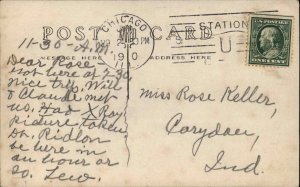 POST CARD
CHICAGO
PM
1910
STATION
U
U.S. POSTAGE
ONE CENT
MESSAGE HERE
ADDRESS HERE
11-30 A.M.
Dear Rose
Got here at 7-30
nice trip. Will
& Claude met
us. Had X Ray
picture taken
Dr. Ridlon
be here in
an hour or
so. Lew.
Miss Rose Keller,
Corydon,
Ind.